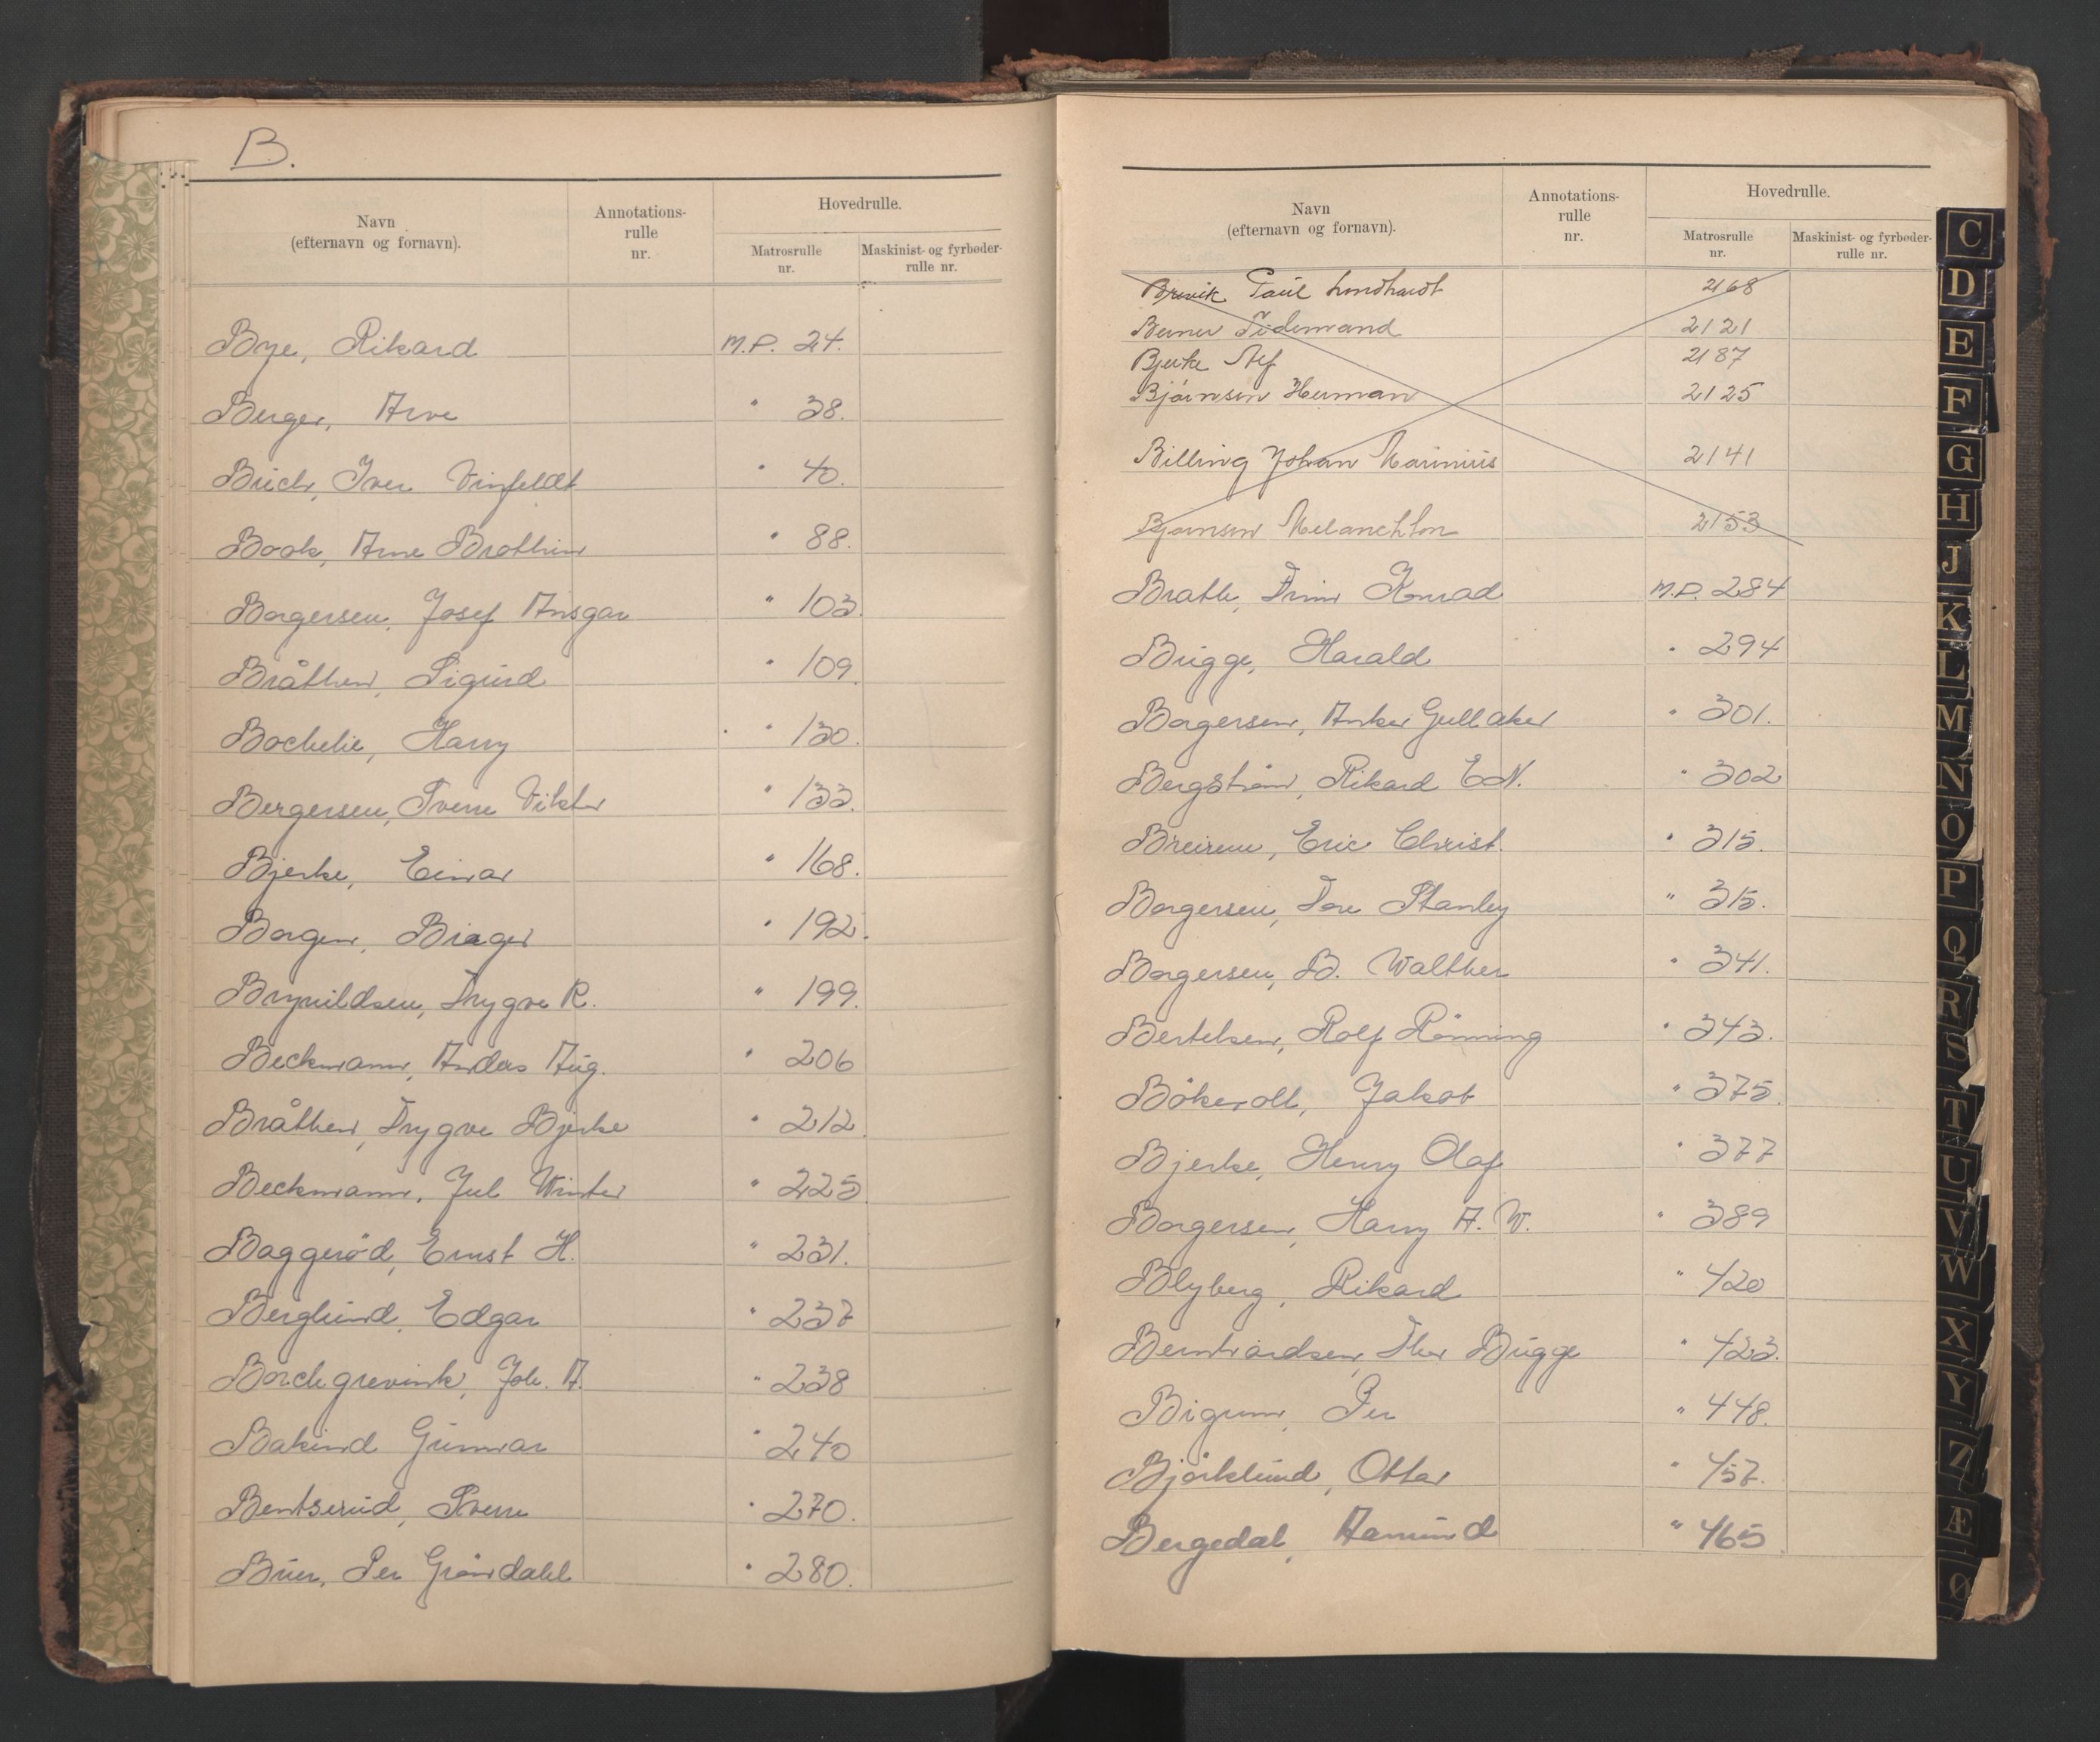 B.
Navn
(efternavn og fornavn).
Annotations-
rulle
nr.
Hovedrulle.
Matrosrulle
nr.
Maskinist- og fyrbøder-
rulle nr.
Bye, Rikard M.P. 24.
Berger, Arve " 38.
Buch, Iver Vinfeldt " 40.
Book, Arne Brothen " 88.
Borgersen, Josef Ansgar " 103.
Bråthen, Sigurd " 109.
Bochelie, Harry " 130.
Bergersen, Sverre Viktor " 133.
Bjerke, Einar " 168.
Borgen, Birger " 192.
Brynildsen, Trygve R. " 199.
Beckmann, Andas Aug. " 206
Bråthen, Trygve Bjerke " 212
Beckmann, Jul Winter " 225
Baggerød, Ernst H. " 231.
Berglund, Edgar " 237
Borchgrevink, Joh. A. " 238
Bakind Gunnar " 240
Bentserud, Sverre " 270.
Buer, Per Gröndahl " 280.
Navn
(efternavn og fornavn).
Annotations-
rulle
nr.
Hovedrulle.
Matrosrulle
nr.
Maskinist- og fyrbøder-
rulle nr.
Brevik Paul Lundhardt 2168
Berner Tidemand 2121
Bjerke Alf 2187
Bjørnsen Herman 2125
Billing Johan Marinius 2141
Bjørnsen Melanchton 2153
Brathe, Konrad M.P. 284
Brigge, Harald " 294
Borgersen, Anker Gullaker " 301.
Bergström, Rikard E.N. " 302
Breirem, Eric Christ. " 315.
Borgersen, Tore Stanley " 315.
Borgersen, B. Walther " 341.
Bertelsen, Rolf Rönning " 343.
Bökevoll, Jakob " 375.
Bjerke, Henry Olaf " 377
Borgersen, Harry A. W. " 389
Blyberg, Rikard " 420
Berntsrdsen, Thor Bugge " 423.
Bigum, Per " 448.
Björklund, Ottar " 457.
Bergedal, Aamund " 465.
C
D
E
F
G
H
J
K
L
M
N
O
P
Q
R
S
T
U
V
W
X
Y
Z
Æ
Ø